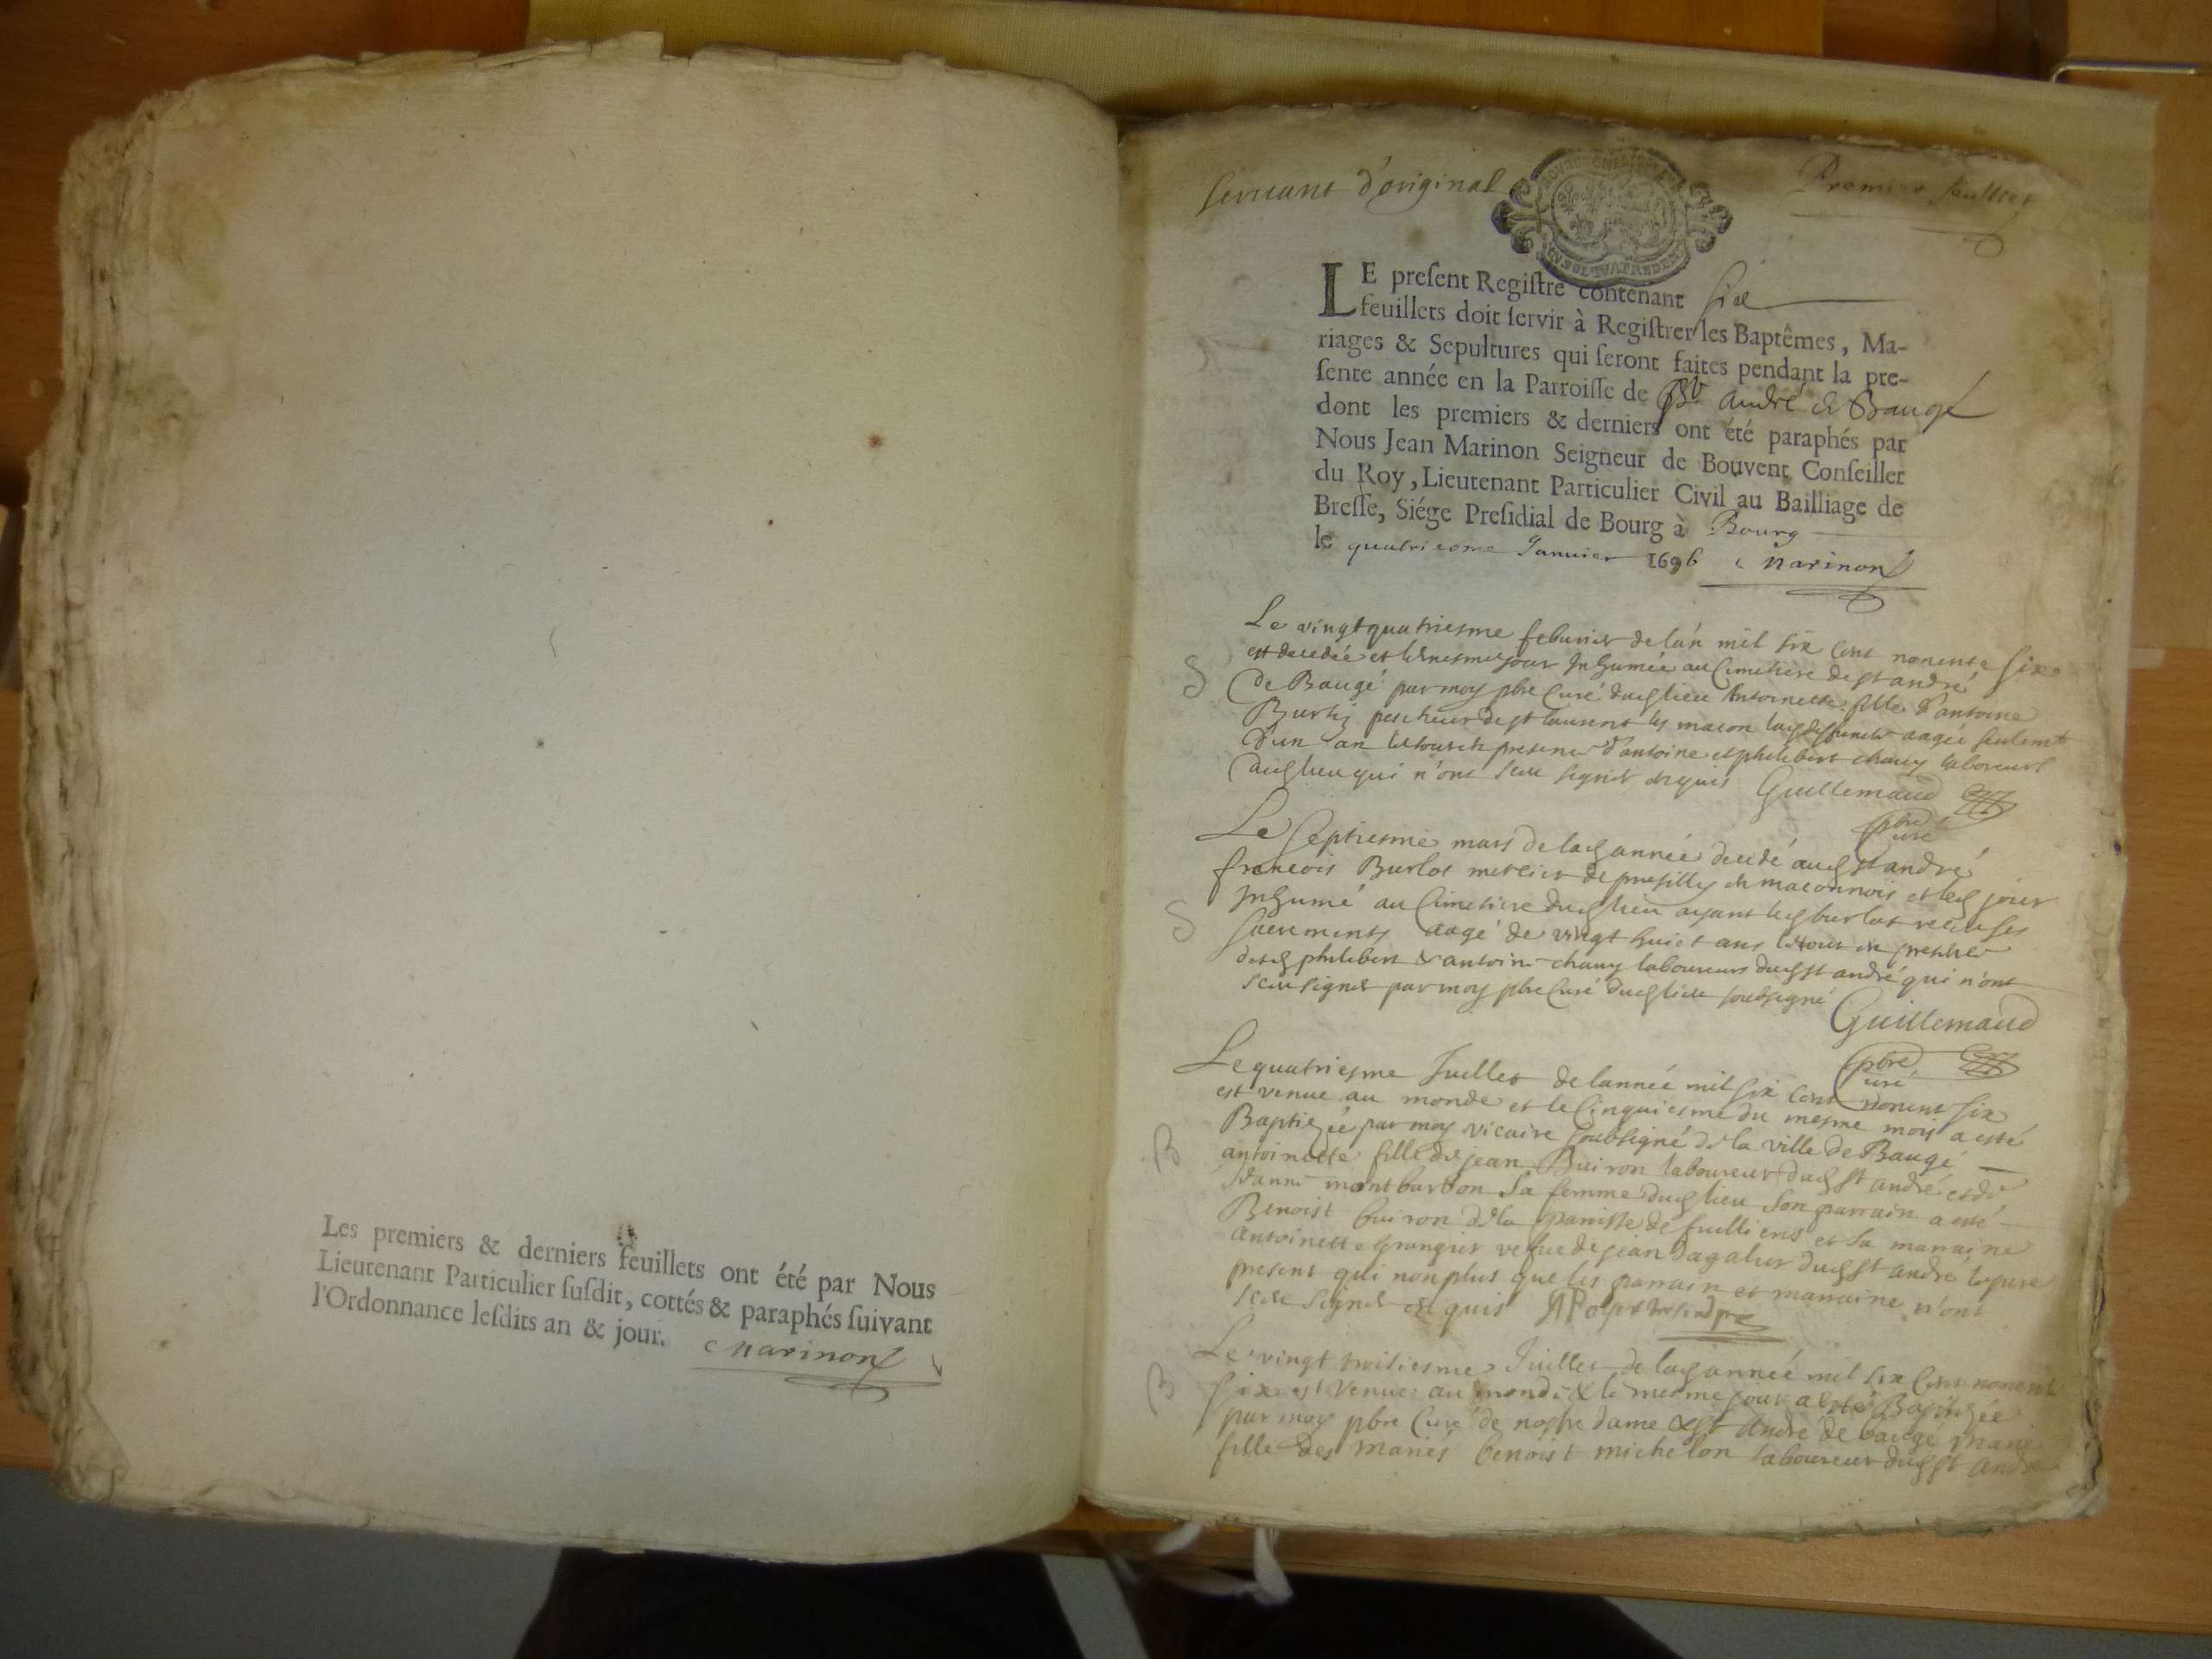 Les premiers & derniers feuillets ont été par Nous
Lieutenant Particulier suſdit, cottés & paraphés ſuivant
l'Ordonnance leſdits an & jour. Marinon
ſervant d'original
Premier feuillet
LE preſent Regiſtre contenant six
feuillets doit ſervir à Regiſtrer les Baptêmes, Ma-
riages & Sepultures qui ſeront faites pendant la pre-
ſente année en la Parroiſſe de St André de Baugé
dont les premiers & derniers ont été paraphés par
Nous Jean Marinon Seigneur de Bouvent Conſeiller
du Roy, Lieutenant Particulier Civil au Bailliage de
Breſſe, Siége Preſidial de Bourg à Bourg
le quatriesme Janvier 1696 Marinon
Le vingtquatriesme feburier de lan mil six cent nonente six
est decedée et le mesme jour Inhumée au Cimetiere de st andré
S
de Baugé par moy pbre Curé dud lieu Antoinette fille d'antoine
pescheur de st laurent les macon lad deffuncte aagée seulemt
d'un an le tout en presence d'antoine et philibert chauy laboureurs
dud lieu qui n'ont sceu signer enquis Guillemaud
pbre
Curé
Le Septiesme mars de lad année decedé aud st andré
francois Burlot mercier de prusilly en maconnois et led jour
Inhumé au Cimetiere dud lieu ayant led burlot receu ses
S
sacrements aagé de vingt huict ans le tout en presence
desd philibert & antoine chauy laboureurs dud st andré qui n'ont
sceu signer par moy pbre Curé dud lieu soubsigné
Guillemaud
pbre
Curé
Le quatriesme Juillet de lannée mil six cent nonente six
est venue au monde et le Cinquiesme du mesme mois a esté
Baptizée par moy vicaire soubsigné de la ville de Baugé
B
antoinette fille de jean Buiron laboureur dud st andré et de
montbarbon sa femme dud lieu son parrain a esté
Benoist buiron de la parroisse de et sa marraine
antoinette Grangier vefue de jean dagalier dud st andré le pere
present qui non plus que les parrain et marraine n'ont
sceu signer enquis
Le vingt troisiesme Juillet de lad année mil six cent nonente
B
six est venue au monde & le mesme jour a esté Baptizée
par moy pbre Curé de nostre dame & st André de baugé marie
fille des mariés benoist michelon laboureur dud st André